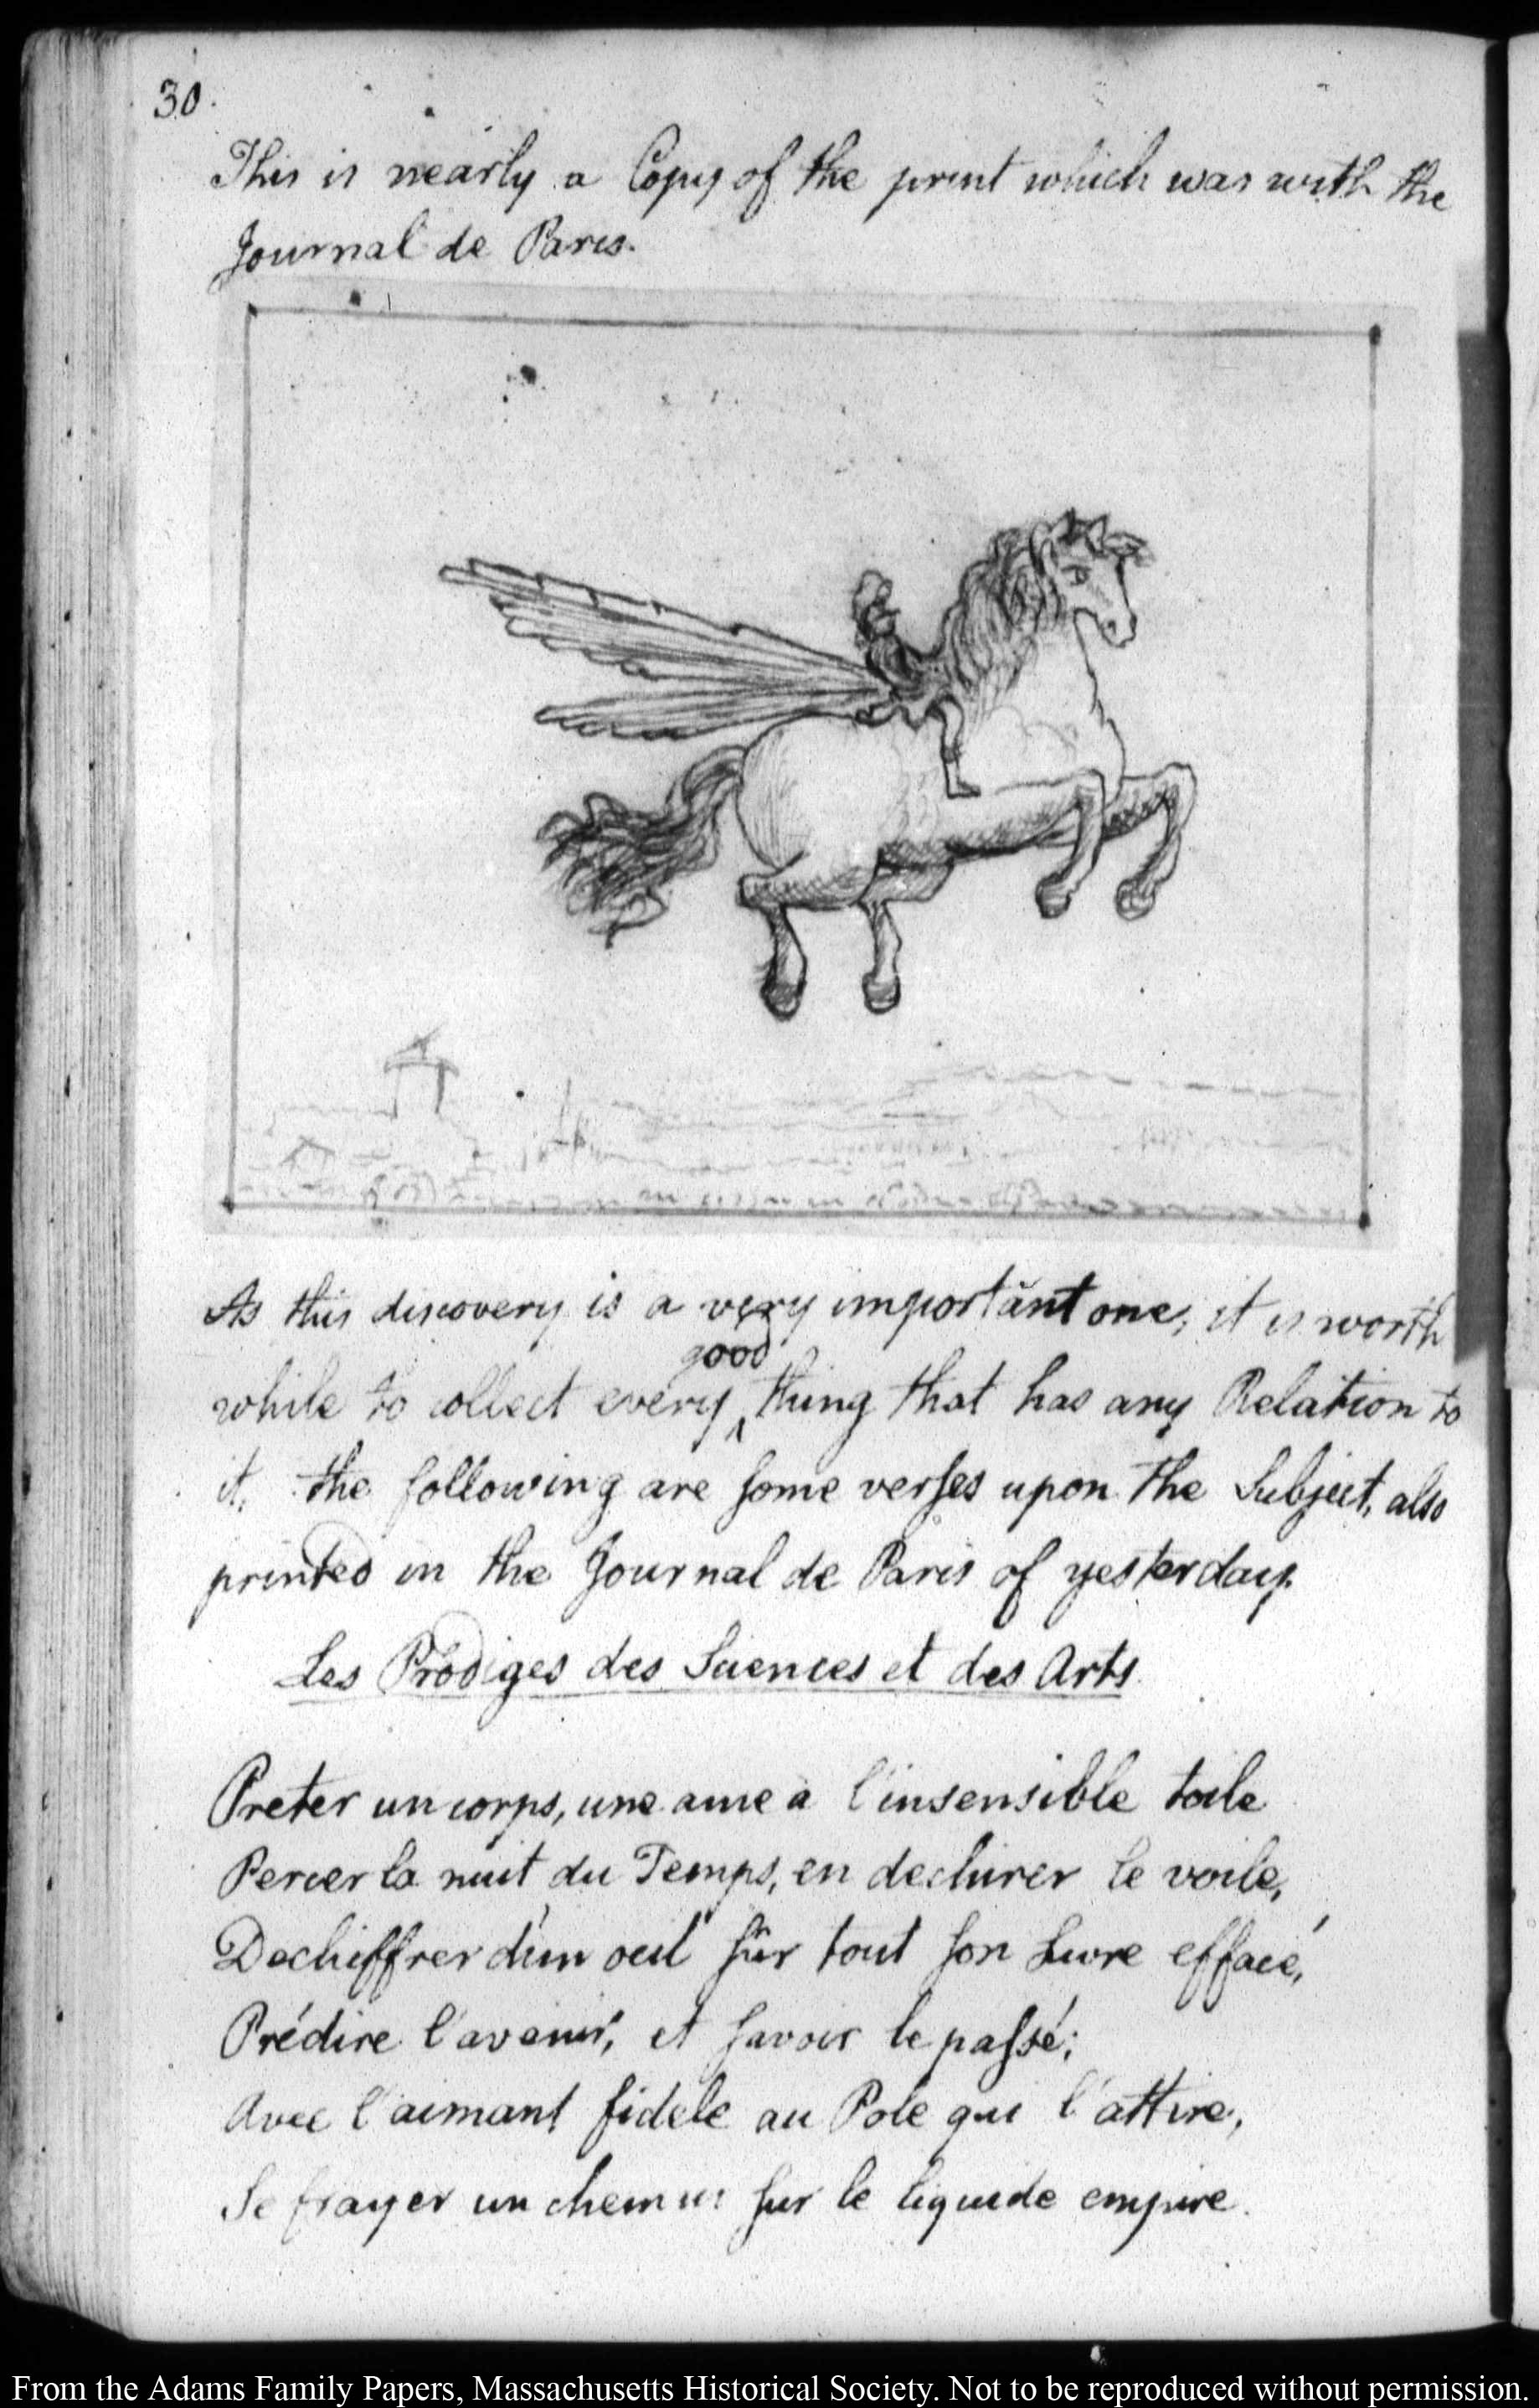 30.
This is nearly a Copy of the print which was with the
Journal de Paris.
As this discovery is a very important one, it is worth
good
while to collect every ‸ thing that has any Relation to
it. the following are some verses upon the Subject, also
printed in the Journal de Paris of yesterday.
Les Prodiges des Sciences et des Arts
Preter un corps, une ame a l'insensible toile
Percer la nuit du Temps, en dechirer le voile,
Dechiffrer d'un oeil sûr tout son Livre effacé,
Prédire l'avenir, et savoir le passé;
Avec l'aimant fidele au Pole qui l'attire,
Se frayer un chemin sur le liquide empire.
From the Adams Family Papers, Massachusetts Historical Society. Not to be reproduced without permission.